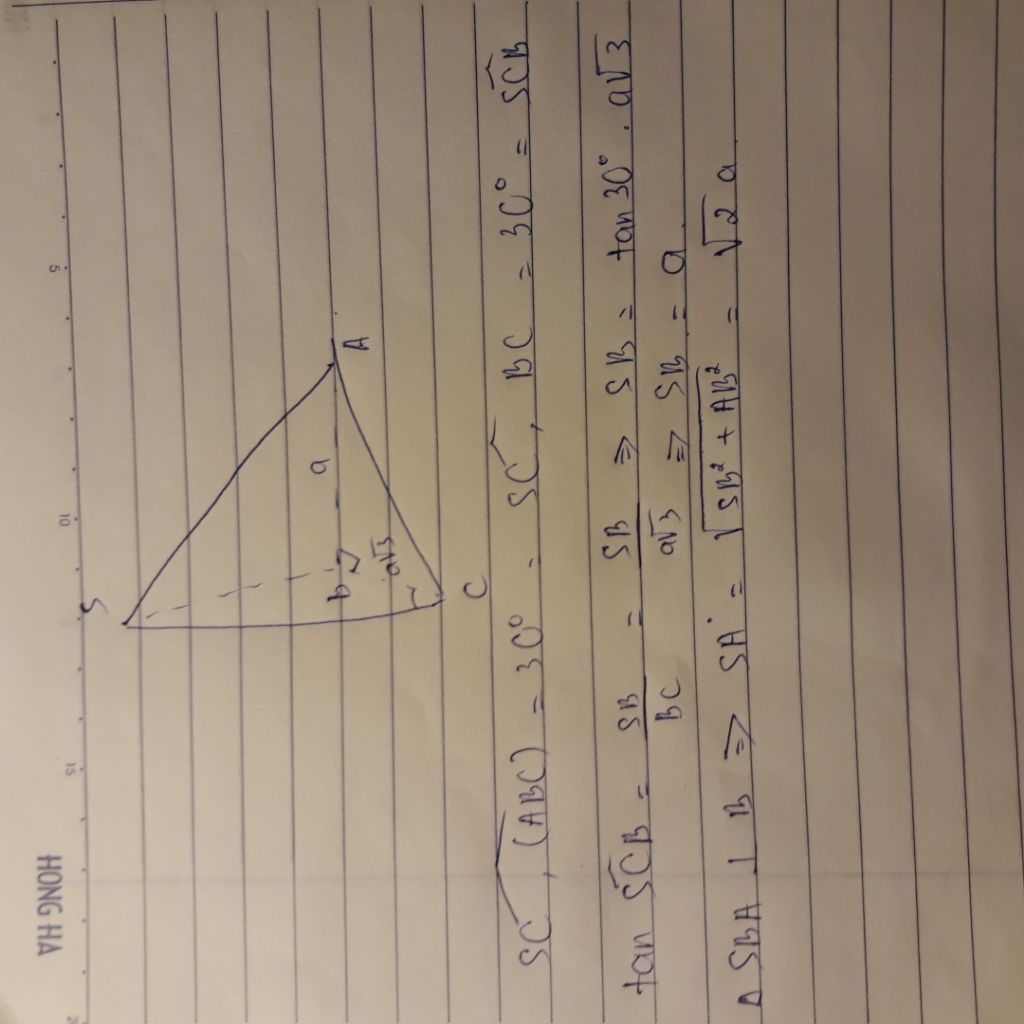 HONG HA
5
10
15
S
A
a
b
a√3
C
SC, (ABC) = 30° = SC, BC = 30° = SCB
tan SCB = SB/BC = SB/a√3 ⇒ SB = tan 30° . a√3
⇒ SB = a
Δ SBA ⊥ B ⇒ SA = √SB² + AB² = √2 a